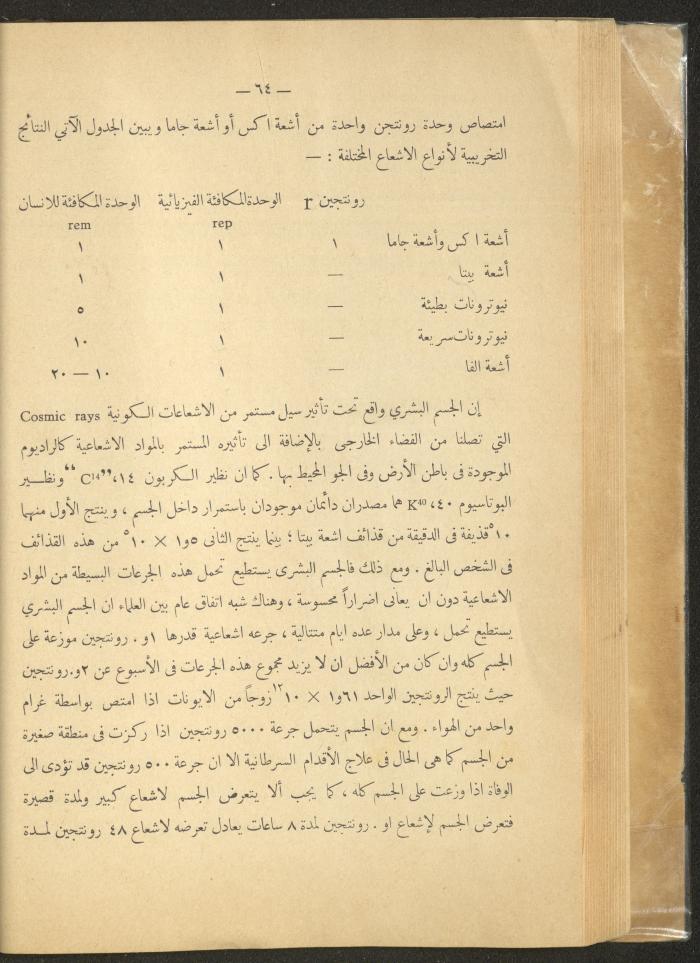 — ٦٤ —
امتصاص وحدة رونتجن واحدة من أشعة اكس أو أشعة جاما ويبين الجدول الآتي النتائج
التخريبية لأنواع الاشعاع المختلفة : —
رونتجين r الوحدة المكافئة الفيزيائية الوحدة المكافئة للانسان
rep rem
أشعة اكس وأشعة جاما ١ ١ ١
أشعة بيتا — ١ ١
نيوترونات بطيئة — ١ ٥
نيوترونات سريعة — ١ ١٠
أشعة الفا — ١ ١٠ — ٢٠
إن الجسم البشري واقع تحت تأثير سيل مستمر من الاشعاعات الكونية Cosmic rays
التي تصلنا من الفضاء الخارجى بالإضافة الى تأثيره المستمر بالمواد الاشعاعية كالراديوم
الموجودة فى باطن الأرض وفى الجو المحيط بها . كما ان نظير الكربون ١٤، ”C¹⁴“ ونظير
البوتاسيوم ٤٠، K⁴⁰ هما مصدران دائمان موجودان باستمرار داخل الجسم ، وينتج الأول منهما
١٠⁵ قذيفة فى الدقيقة من قذائف اشعة بيتا ؛ بينما ينتج الثانى ٥و١ × ١٠⁵ من هذه القذائف
فى الشخص البالغ . ومع ذلك فالجسم البشرى يستطيع تحمل هذه الجرعات البسيطة من المواد
الاشعاعية دون ان يعانى اضراراً محسوسة ، وهناك شبه اتفاق عام بين العلماء ان الجسم البشري
يستطيع تحمل ، وعلى مدار عده ايام متتالية ، جرعه اشعاعية قدرها ١و . رونتجين موزعة على
الجسم كله وان كان من الأفضل ان لا يزيد مجموع هذه الجرعات فى الأسبوع عن ٢و.رونتجين
حيث ينتج الرونتجين الواحد ٦١و١ × ١٠¹² زوجاً من الايونات اذا امتص بواسطة غرام
واحد من الهواء . ومع ان الجسم يتحمل جرعة ٥٠٠٠ رونتجين اذا ركزت فى منطقة صغيرة
من الجسم كما هى الحال فى علاج الأقدام السرطانية الا ان جرعة ٥٠٠ رونتجين قد تؤدى الى
الوفاة اذا وزعت على الجسم كله ، كما يجب ألا يتعرض الجسم لاشعاع كبير ولمدة قصيرة
فتعرض الجسم لإشعاع ١و . رونتجين لمدة ٨ ساعات يعادل تعرضه لاشعاع ٤٨ رونتجين لمدة